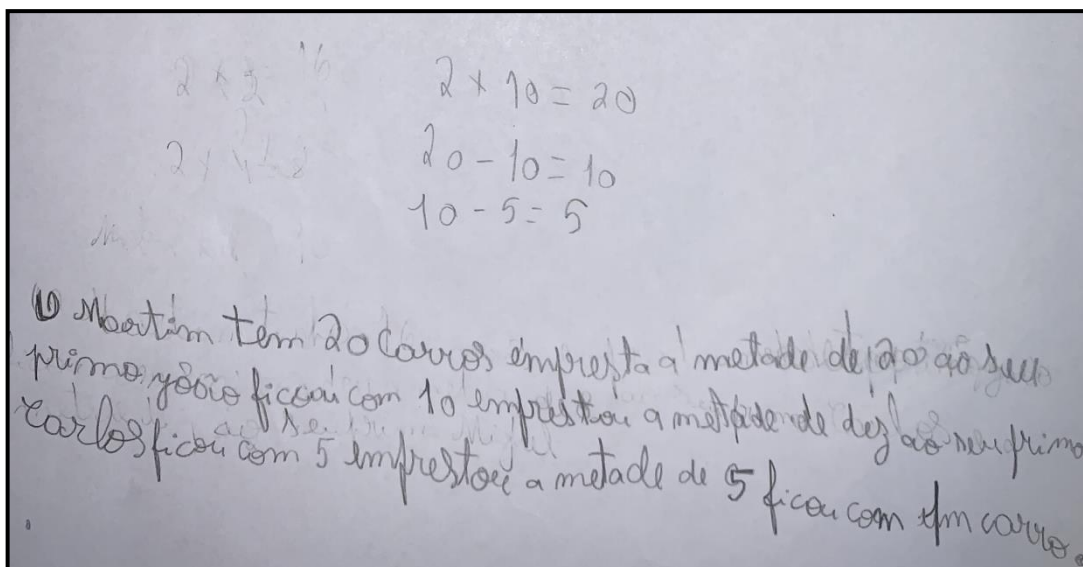 2 x 10 = 20
20 - 10 = 10
10 - 5 = 5
O Martim tem 20 carros empresta a metade de 20 ao seu
primo joão ficou com 10 emprestou a metade de dez ao seu primo
Carlos ficou com 5 emprestou a metade de 5 ficou com um carro.